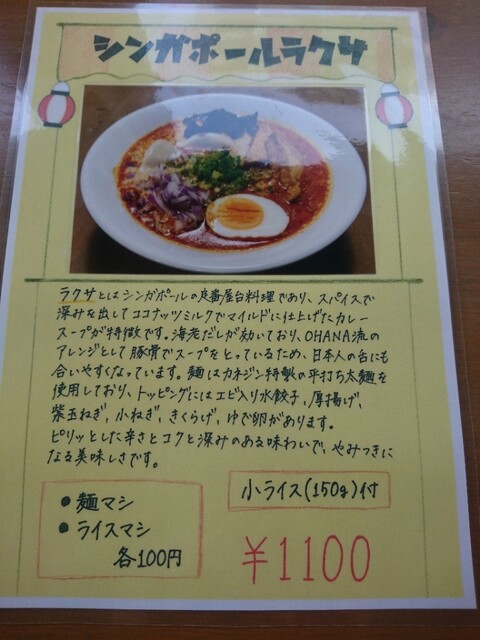 シンガポールラクサ
ラクサとはシンガポールの定番屋台料理であり、スパイスで
深みを出してココナッツミルクでマイルドに仕上げたカレー
スープが特徴です。海老だしが効いており、OHANA流の
アレンジとして豚骨でスープをとっているため、日本人の舌にも
合いやすくなっています。麺はカネジン特製の平打ち太麺を
使用しており、トッピングにはエビ入り水餃子、厚揚げ、
紫玉ねぎ、小ねぎ、きくらげ、ゆで卵があります。
ピリッとした辛さとコクと深みのある味わいで、やみつきに
なる美味しさです。
●麺マシ
●ライスマシ
各100円
小ライス(150g)付
¥1100